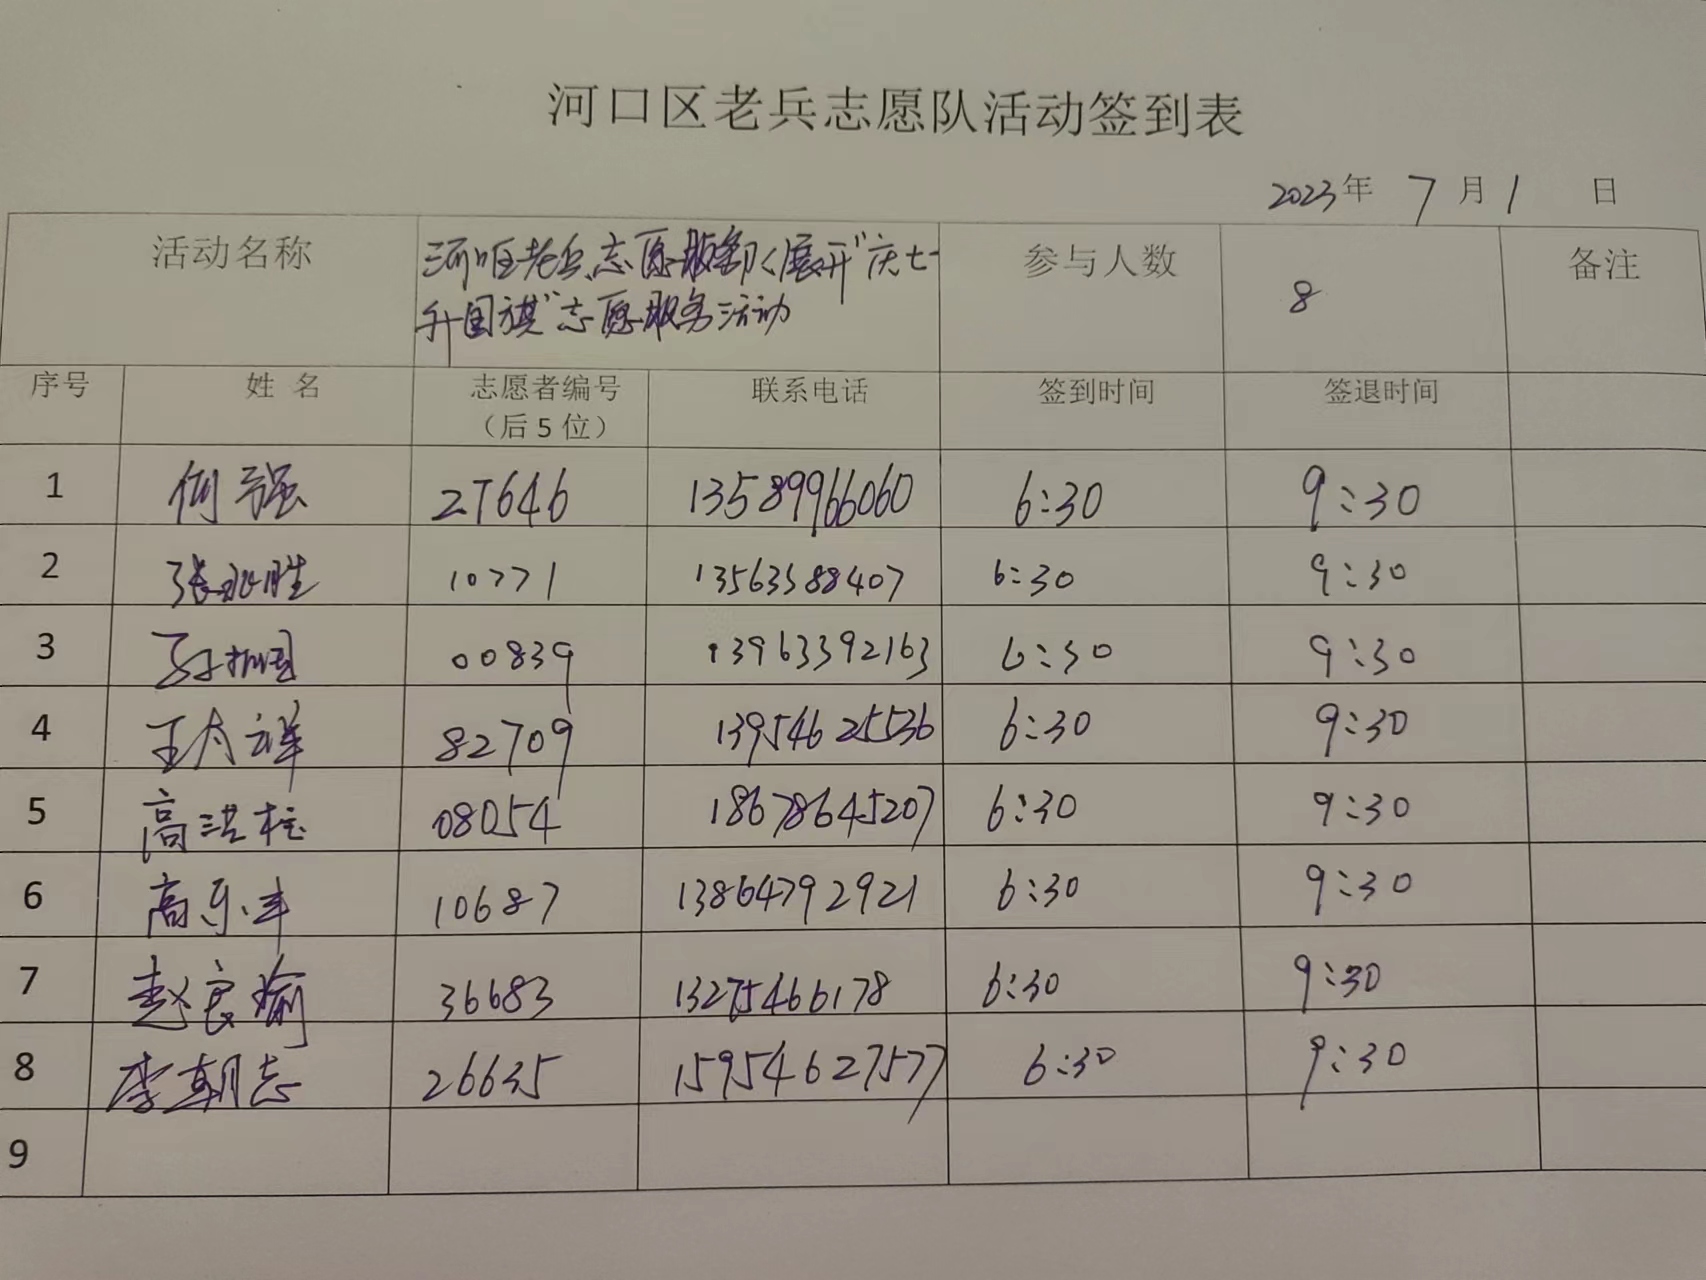 河口区老兵志愿队活动签到表
2023年 7月1 日
活动名称 河口区老兵志愿服务队开展"庆七一 参与人数 8 备注
升国旗"志愿服务活动
序号 姓 名 志愿者编号 联系电话 签到时间 签退时间
（后5位）
1 何强 27646 13589966060 6:30 9:30
2 张兆胜 10771 13563588407 6:30 9:30
3 00839 13963392163 6:30 9:30
4 王大祥 82709 13954625536 6:30 9:30
5 高洪柱 08054 18678645207 6:30 9:30
6 高乐丰 10687 13864792921 6:30 9:30
7 赵良瑜 36683 13275466178 6:30 9:30
8 李朝志 26635 15954627577 6:30 9:30
9